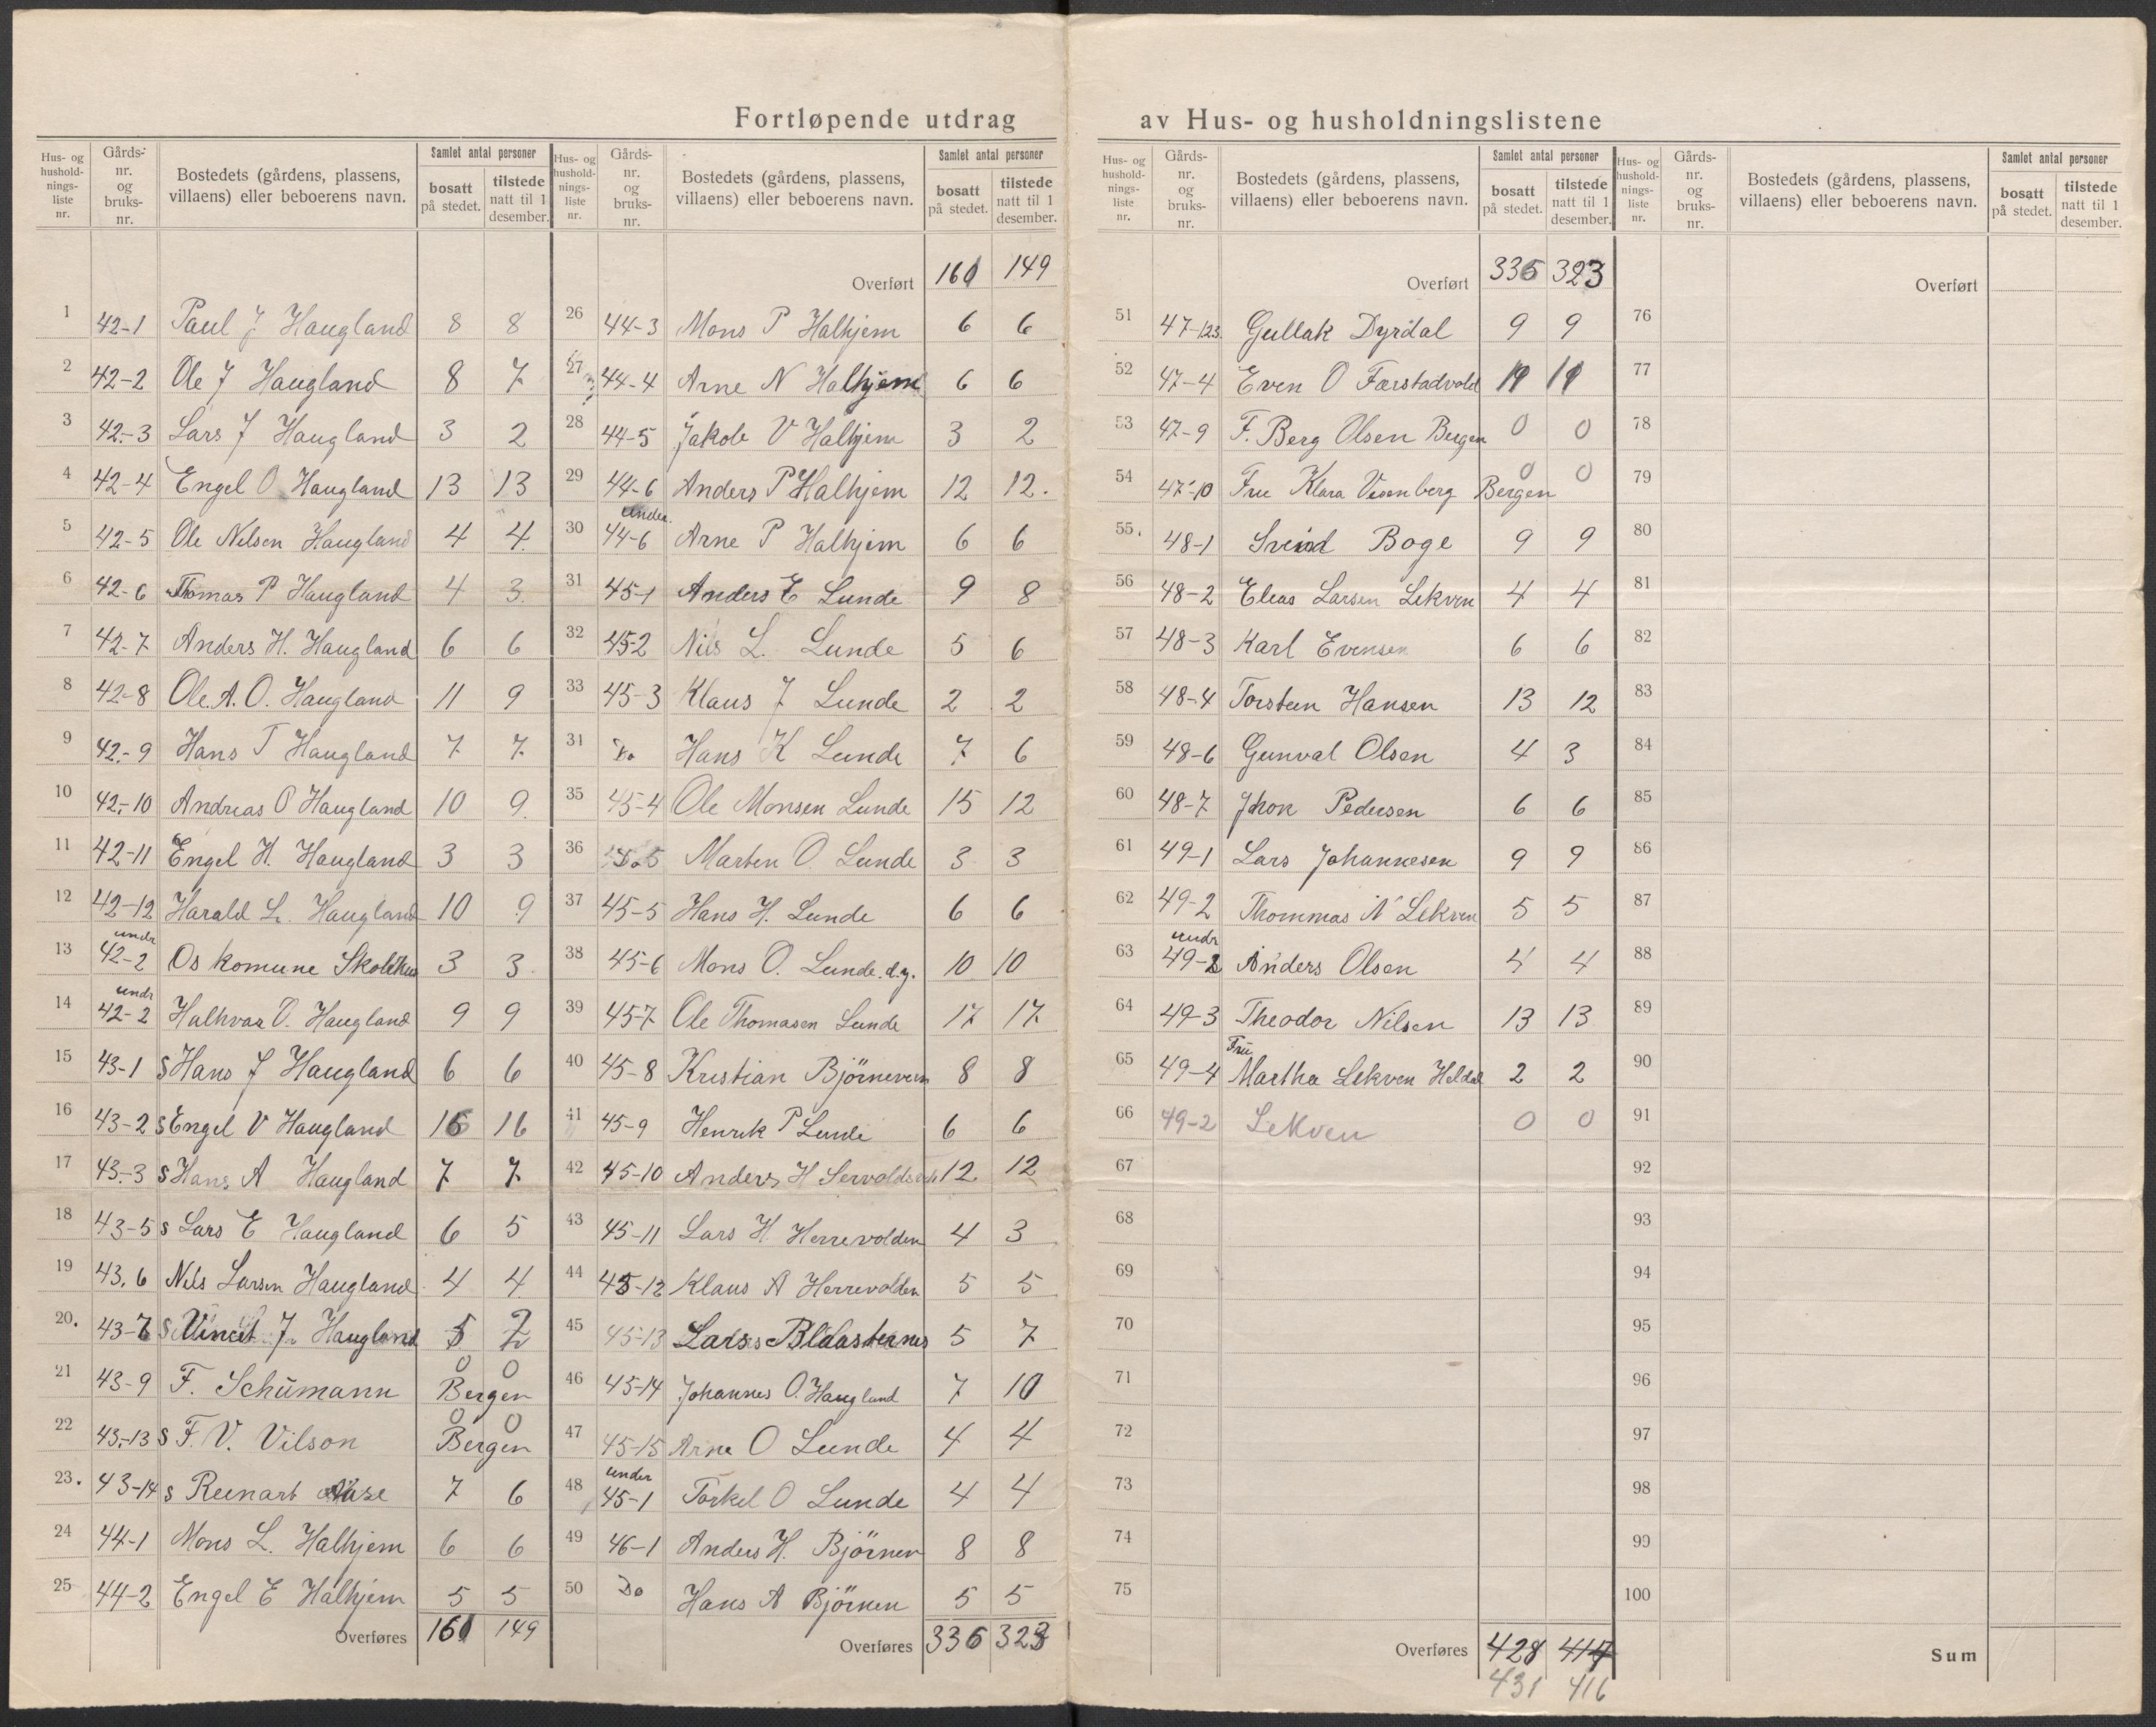 Fortløpende utdrag av Hus- og husholdningslistene
Hus- og hushold-nings-liste nr. | Gårds-nr. og bruks-nr. | Bostedets (gårdens, plassens, villaens) eller beboerens navn. | Samlet antal personer | bosatt på stedet. | tilstede natt til 1 desember.
1 42-1 Paul J Haugland 8 8
2 42-2 Ole J Haugland 8 7
3 42-3 Lars J Haugland 3 2
4 42-4 Engel O Haugland 13 13
5 42-5 Ole Nilsen Haugland 4 4
6 42-6 Thomas P Haugland 4 3
7 42-7 Anders H. Haugland 6 6
8 42-8 Ole. A. O. Haugland 11 9
9 42-9 Hans T Haugland 7 7
10 42-10 Andreas O Haugland 10 9
11 42-11 Engel H. Haugland 3 3
12 42-12 Harald L. Haugland 10 9
13 undr 42-2 Os komune Skolehus 3 3
14 undr 42-2 Halhvar O. Haugland 9 9
15 43-1 S Hans J Haugland 6 6
16 43-2 S Engel V Haugland 16 16
17 43-3 S Hans A Haugland 7 7
18 43-5 S Lars E Haugland 6 5
19 43.6 Nils Larsen Haugland 4 4
20. 43-7 S J. Haugland 5 2
21 43-9 F. Schümann Bergen 0 0
22 43-13 S F. V. Vilson Bergen 0 0
23. 43-14 S Reinart 7 6
24 44-1 Mons L. Halhjem 6 6
25 44-2 Engel E Halhjem 5 5
Overføres 161 149
Hus- og hushold-nings-liste nr. | Gårds-nr. og bruks-nr. | Bostedets (gårdens, plassens, villaens) eller beboerens navn. | Samlet antal personer | bosatt på stedet. | tilstede natt til 1 desember.
Overført 161 149
26 44-3 Mons P Halhjem 6 6
27 44-4 Arne N Halhjem 6 6
28 44-5 Jakob V Halhjem 3 2
29 44-6 Anders P Halhjem 12 12.
30 under 44-6 Arne P Halhjem 6 6
31 45-1 Anders E Lunde 9 8
32 45-2 Nils L. Lunde 5 6
33 45-3 Klaus J Lunde 2 2
31 Do Hans K Lunde 7 6
35 45-4 Ole Monsen Lunde 15 12
36 Marten O. Lunde 3 3
37 45-5 Hans H. Lunde 6 6
38 45-6 Mons O. Lunde. d.y. 10 10
39 45-7 Ole Thomasen Lunde 17 17
40 45-8 Kristian Björneven 8 8
41 45-9 Henrik P Lunde 6 6
42 45-10 Anders H 12 12
43 45-11 Lars H Herrevolden 4 3
44 45-12 Klaus A Herrevolden 5 5
45 45-13 Lars 5 7
46 45-14 Johannes O. Haugland 7 10
47 45-15 Arne O Lunde 4 4
48 under 45-1 Torkel O Lunde 4 4
49 46-1 Anders H. Björnen 8 8
50 Do Hans A Björnen 5 5
Overføres 336 323
Hus- og hushold-nings-liste nr. | Gårds-nr. og bruks-nr. | Bostedets (gårdens, plassens, villaens) eller beboerens navn. | Samlet antal personer | bosatt på stedet. | tilstede natt til 1 desember.
Overført 336 323
51 47-123. Gullak Dyrdal 9 9
52 47-4 Even O Færstadvold
53 47-9 F. Berg Olsen Bergen 0 0
54 47-10 Fru Klara Bergen 0 0
55. 48-1 Svend Boge 9 9
56 48-2 Eleas Larsen Lekven 4 4
57 48-3 Karl Evensen 6 6
58 48-4 Torsten Hansen 13 12
59 48-6 Gunval Olsen 4 3
60 48-7 Jhon Pedersen 6 6
61 49-1 Lars Johannesen 9 9
62 49-2 Thommas N Lekven 5 5
63 undr 49-2 Anders Olsen 4 4
64 49-3 Theodor Nilsen 13 13
65 49-4 Fru Martha Lekven Heldal 2 2
66 49-2 Lekven 0 0
67
68
69
70
71
72
73
74
75
Overføres 428 414
431 416
Hus- og hushold-nings-liste nr. | Gårds-nr. og bruks-nr. | Bostedets (gårdens, plassens, villaens) eller beboerens navn. | Samlet antal personer | bosatt på stedet. | tilstede natt til 1 desember.
Overført
76
77
78
79
80
81
82
83
84
85
86
87
88
89
90
91
92
93
94
95
96
97
98
99
100
Sum